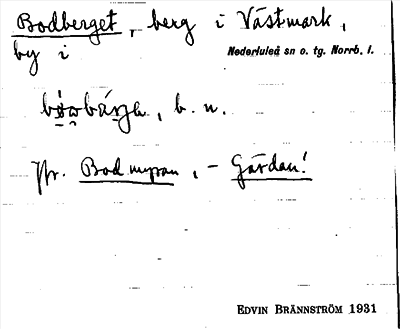 Bodberget, berg i Västmark,
by i Nederluleå sn o. tg. Norrb. l.
b. n.
Jfr. Bodmyran, – Gårdan!
EDVIN BRÄNNSTRÖM 1931